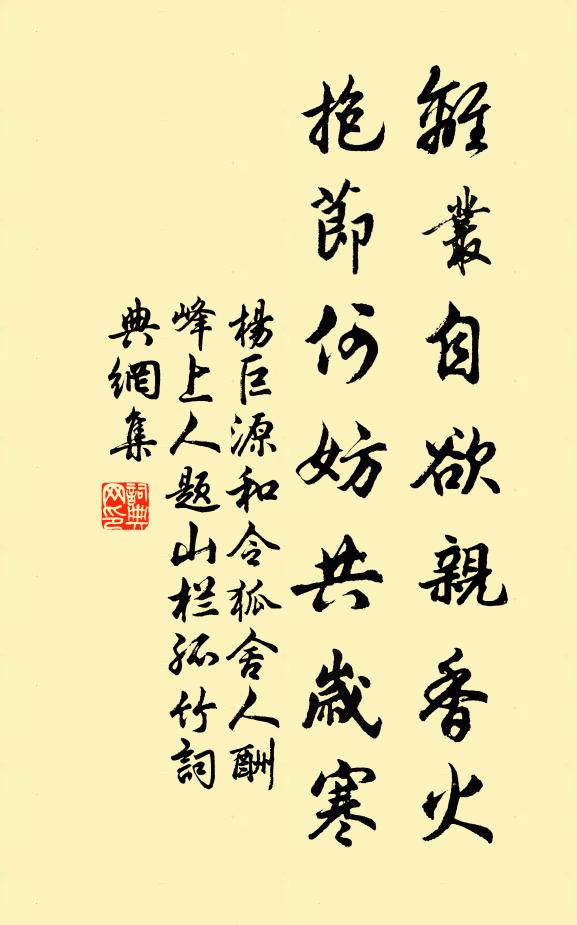 離叢自欲親香火
抱節何妨共歲寒
楊巨源和令狐舍人酬
峰上人题山栏孤竹詞
典網集
詞典
网印